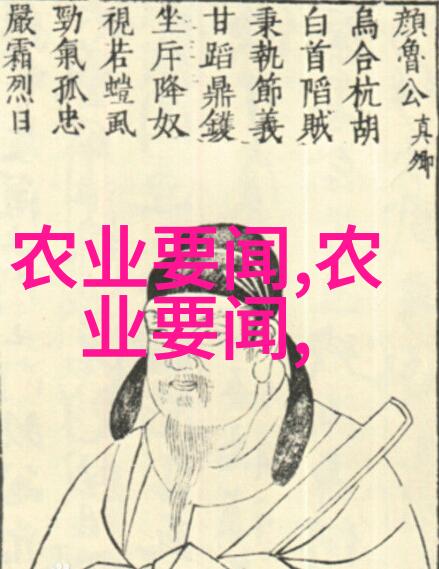 顔魯公真卿
烏合杭胡
白首陷賊
秉執節義
甘蹈鼎鑊
坐斥降奴
視若螘虱
勁氣孤忠
嚴霜烈日
农业要闻,农
业要闻,